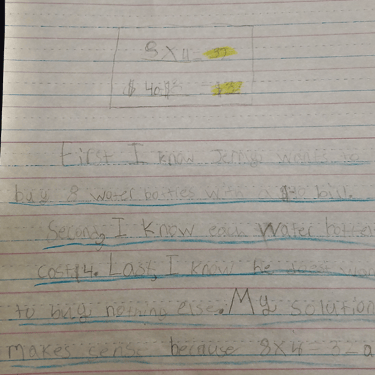 8 x 4 32
$ 40
First I know Jerry wants to
buy 8 water bottles with a $40 bill.
Second, I know each water bottle
cost $4. Last, I know he
to buy nothing else. My solution
makes because 8x4=32